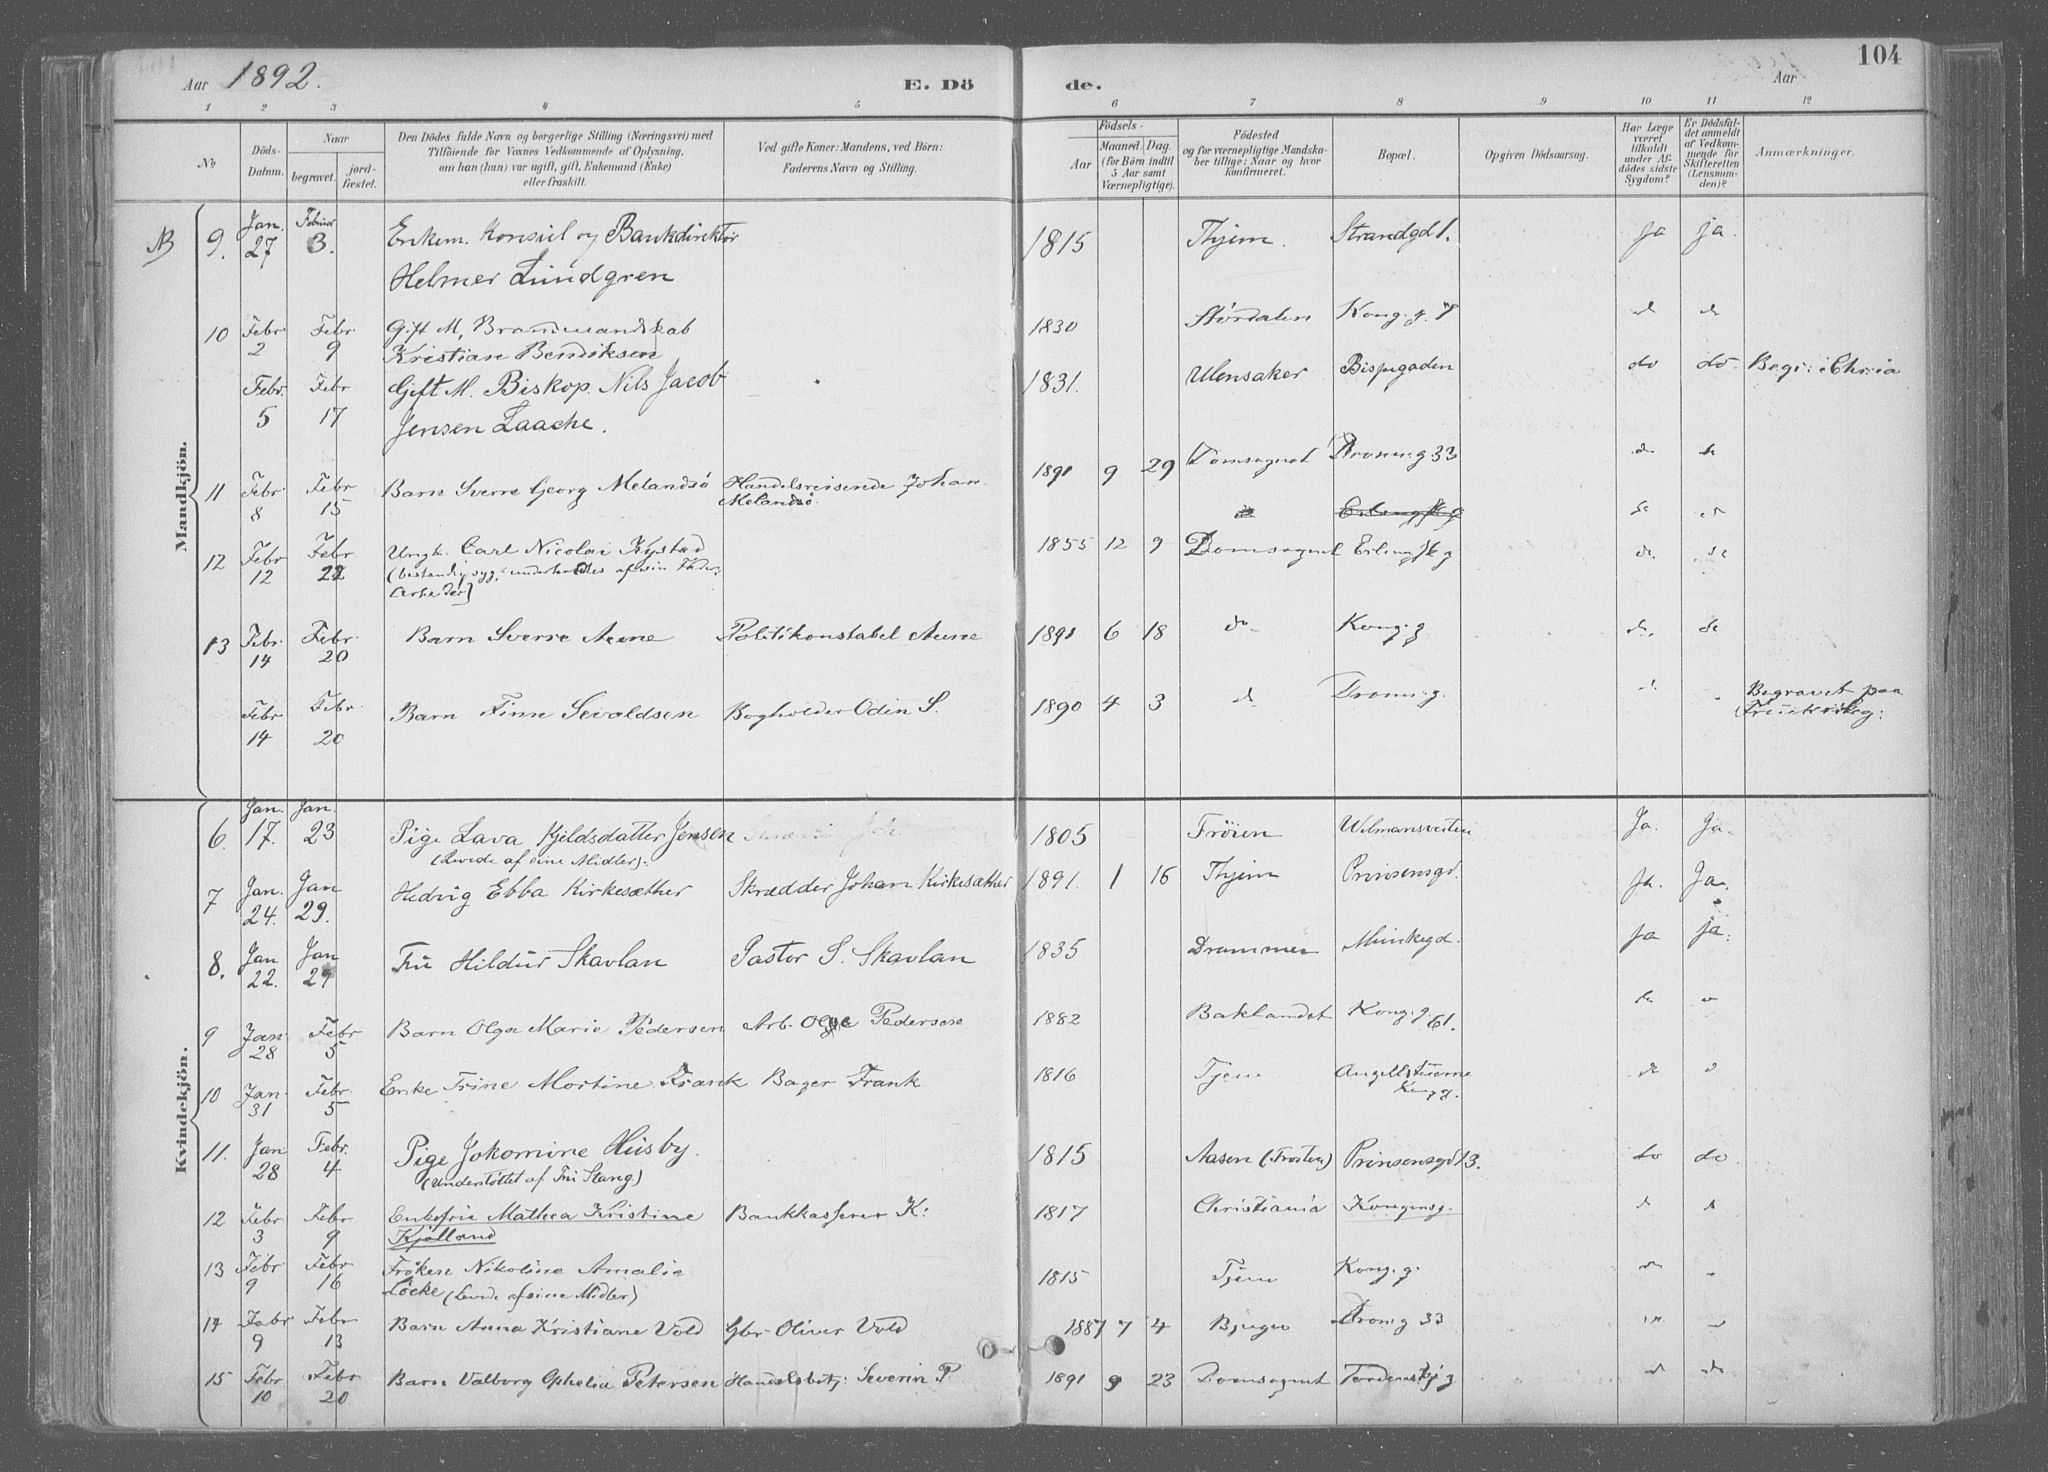 104
Aar 1892.
E. Döde.
Aar
1 2 3 4 5 6 7 8 9 10 11 12
No
Döds-Datum.
Naar
begravet.
jord-fæstet.
Den Dödes fulde Navn og borgerlige Stilling (Næringsvei) med
Tilföiende for Voxnes Vedkommende af Oplysning,
om han (hun) var ugift, gift, Enkemand (Enke)
eller fraskilt.
Ved gifte Koner: Mandens, ved Börn:
Faderens Navn og Stilling.
Födsels-
Aar
Maaned. Dag.
(for Börn indtil
5 Aar samt
Værnepligtige).
Födested
og for værnepligtige Mandska-
ber tillige: Naar og hvor
konfirmeret.
Bopæl.
Opgiven Dödsaarsag.
Har Læge
været
tilkaldt
under Af-
dödes sidste
Sygdom?
Er Dödsfal-
det anmeldt
af Vedkom-
mende for
Skifteretten
(Lensman-
den)?
Anmærkninger.
Mandkjön.
NB 9. Jan. 27 Februar 3. Enkem. Konsul og Bankdirektör 1815 Thjem. Strandgd 1. ja ja.
Helmer Lundgren
10 Febr 2 Febr 9 Gift M. Brandmandskab 1830 Stördalen Kong. g. 7 d d
Kristian Bendiksen
Febr. 5 Febr 17 Gift M. Biskop. Nils Jacob 1831. Ulensaker Bispegaden do do Begr: i Chria
Jensen Laache.
11 Febr 8 Febr 15 Barn Sverre Georg Melandsö Handelsreisende Johan 1891 9 29 Domsognet Dronn. g 33 do do
Melandsö.
12 Febr 12 Febr 22 Ungk. Carl Nicolai Rystad 1855 12 9 Domsognet Erling Sk g do do
(bestandig syg, underholdtes af sin Fader,
Arbeider)
13 Febr. 14 Febr. 20 Barn Sverre Aune Politikonstabel Aune 1891 6 18 do Kong. g do. do
Febr 14 Febr. 20 Barn Finn Sevaldsen Bogholder Odin S. 1890 4 3 d Dronn. g. d Begravet paa
Kvindekjön.
6. Jan. 17. Jan. 23 Pige Lava Kjeldsdatter Jensen 1805 Fröien Wilmansveiten Ja. Ja.
(Levede af sine Midler).
7 Jan. 24. Jan 29. Hedvig Ebba Kirkesæther Skrædder Johan Kirkesæther 1891. 1 16 Thjem Prinsensgd. ja. Ja.
8. Jan 22. Jan 29 Fru Hildur Skavlan Pastor S. Skavlan 1835 Drammen Munkegd. ja ja.
9 Jan. 28 Febr 5 Barn Olga Marie Pedersen Arb. Pedersen 1882 Baklandet Kong. g. 61.
10 Jan. 31 Febr. 5 Enke Trine Mortine Frank Bager Frank 1816 Tjem
11. Jan 28 Febr. 4 Pige Jokomine Husby. 1815 Aasen (Frosten) Prinsensgd 13. do do
(Understöttet af Fru Stang)
12 Febr 3 Febr 9 Enkefrue Mathea Kristine Bankkasserer K: 1817 Christiania Kongensg.
Kjelland
13 Febr 9 Febr 16 Fröken Nikoline Amalie 1815 Tjem Kong. g.
Löcke (Levede af sine Midler)
14 Febr 9 Febr 13 Barn Anna Kristiane Vold Gbr. Oliver Vold 1887 7 4 Bjugn Dronn g 33
15 Febr 10 Febr 20 Barn Valborg Ophelia Petersen Handelsbetj: Severin P 1891 9 23 Domsognet Tordenskj g